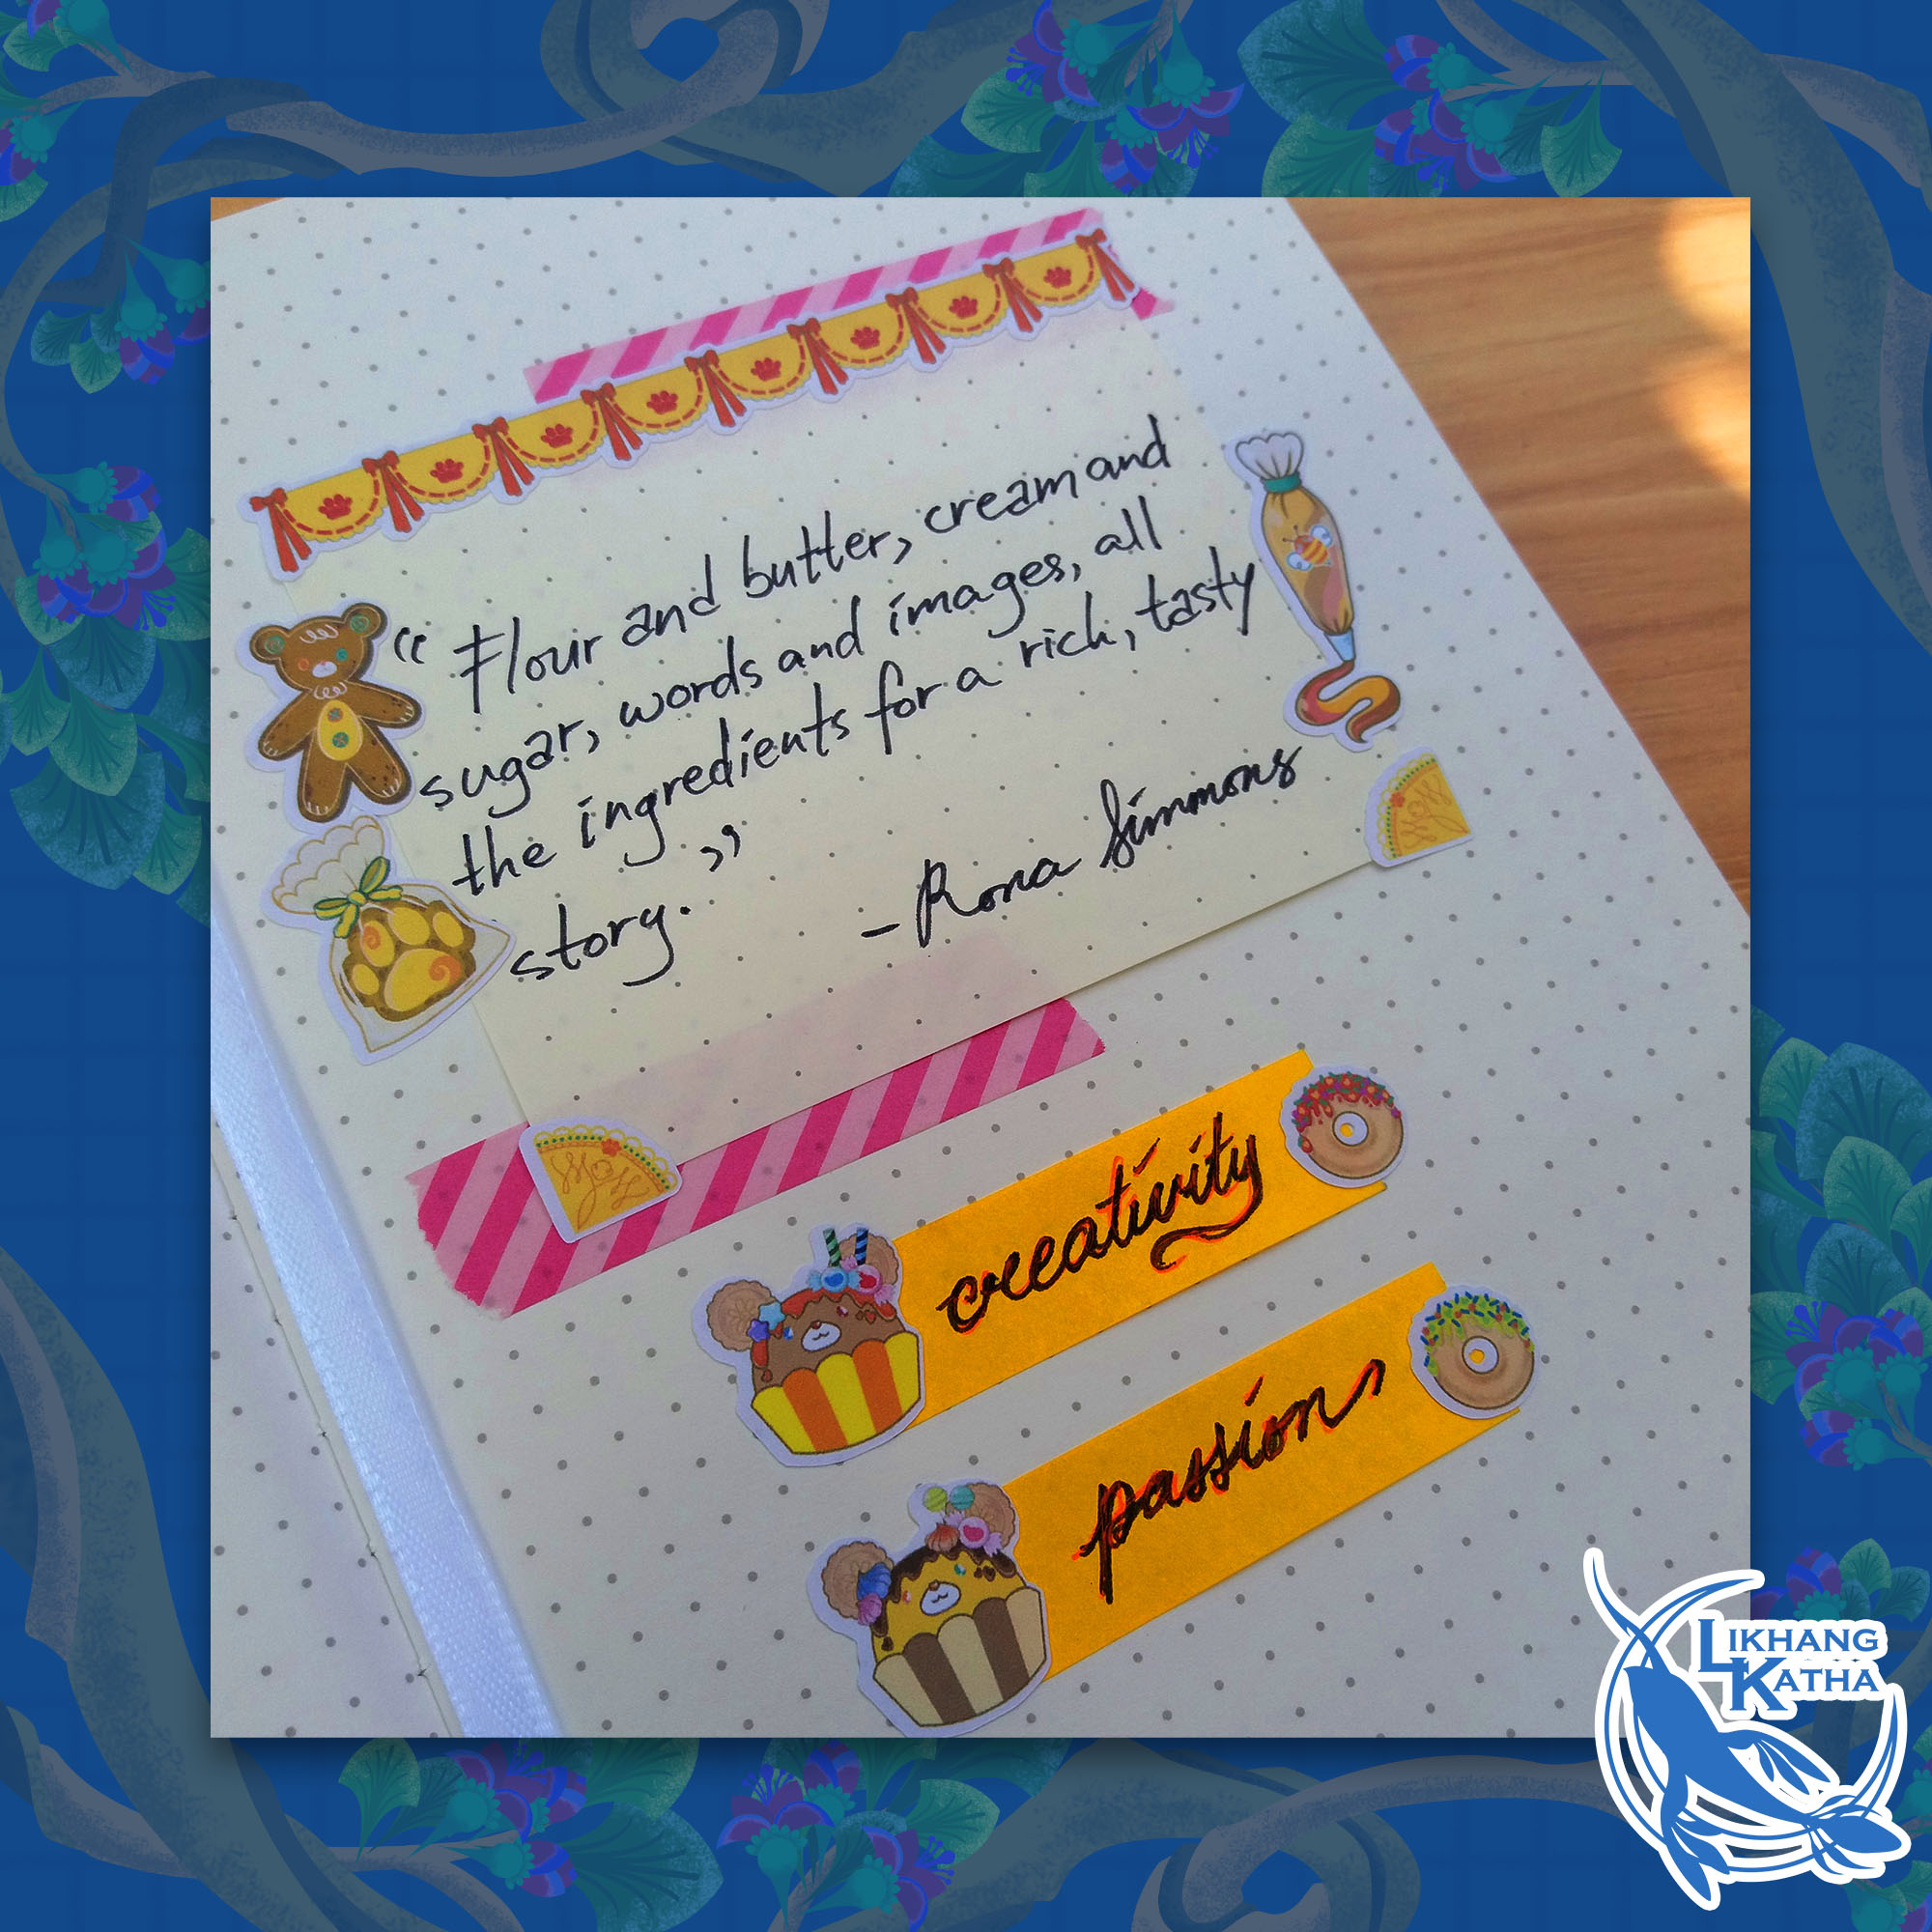 “Flour and butter, cream and
sugar, words and images, all
the ingredients for a rich, tasty
story.”
- Rona Simmons
creativity
passion
LIKHANG
KATHA